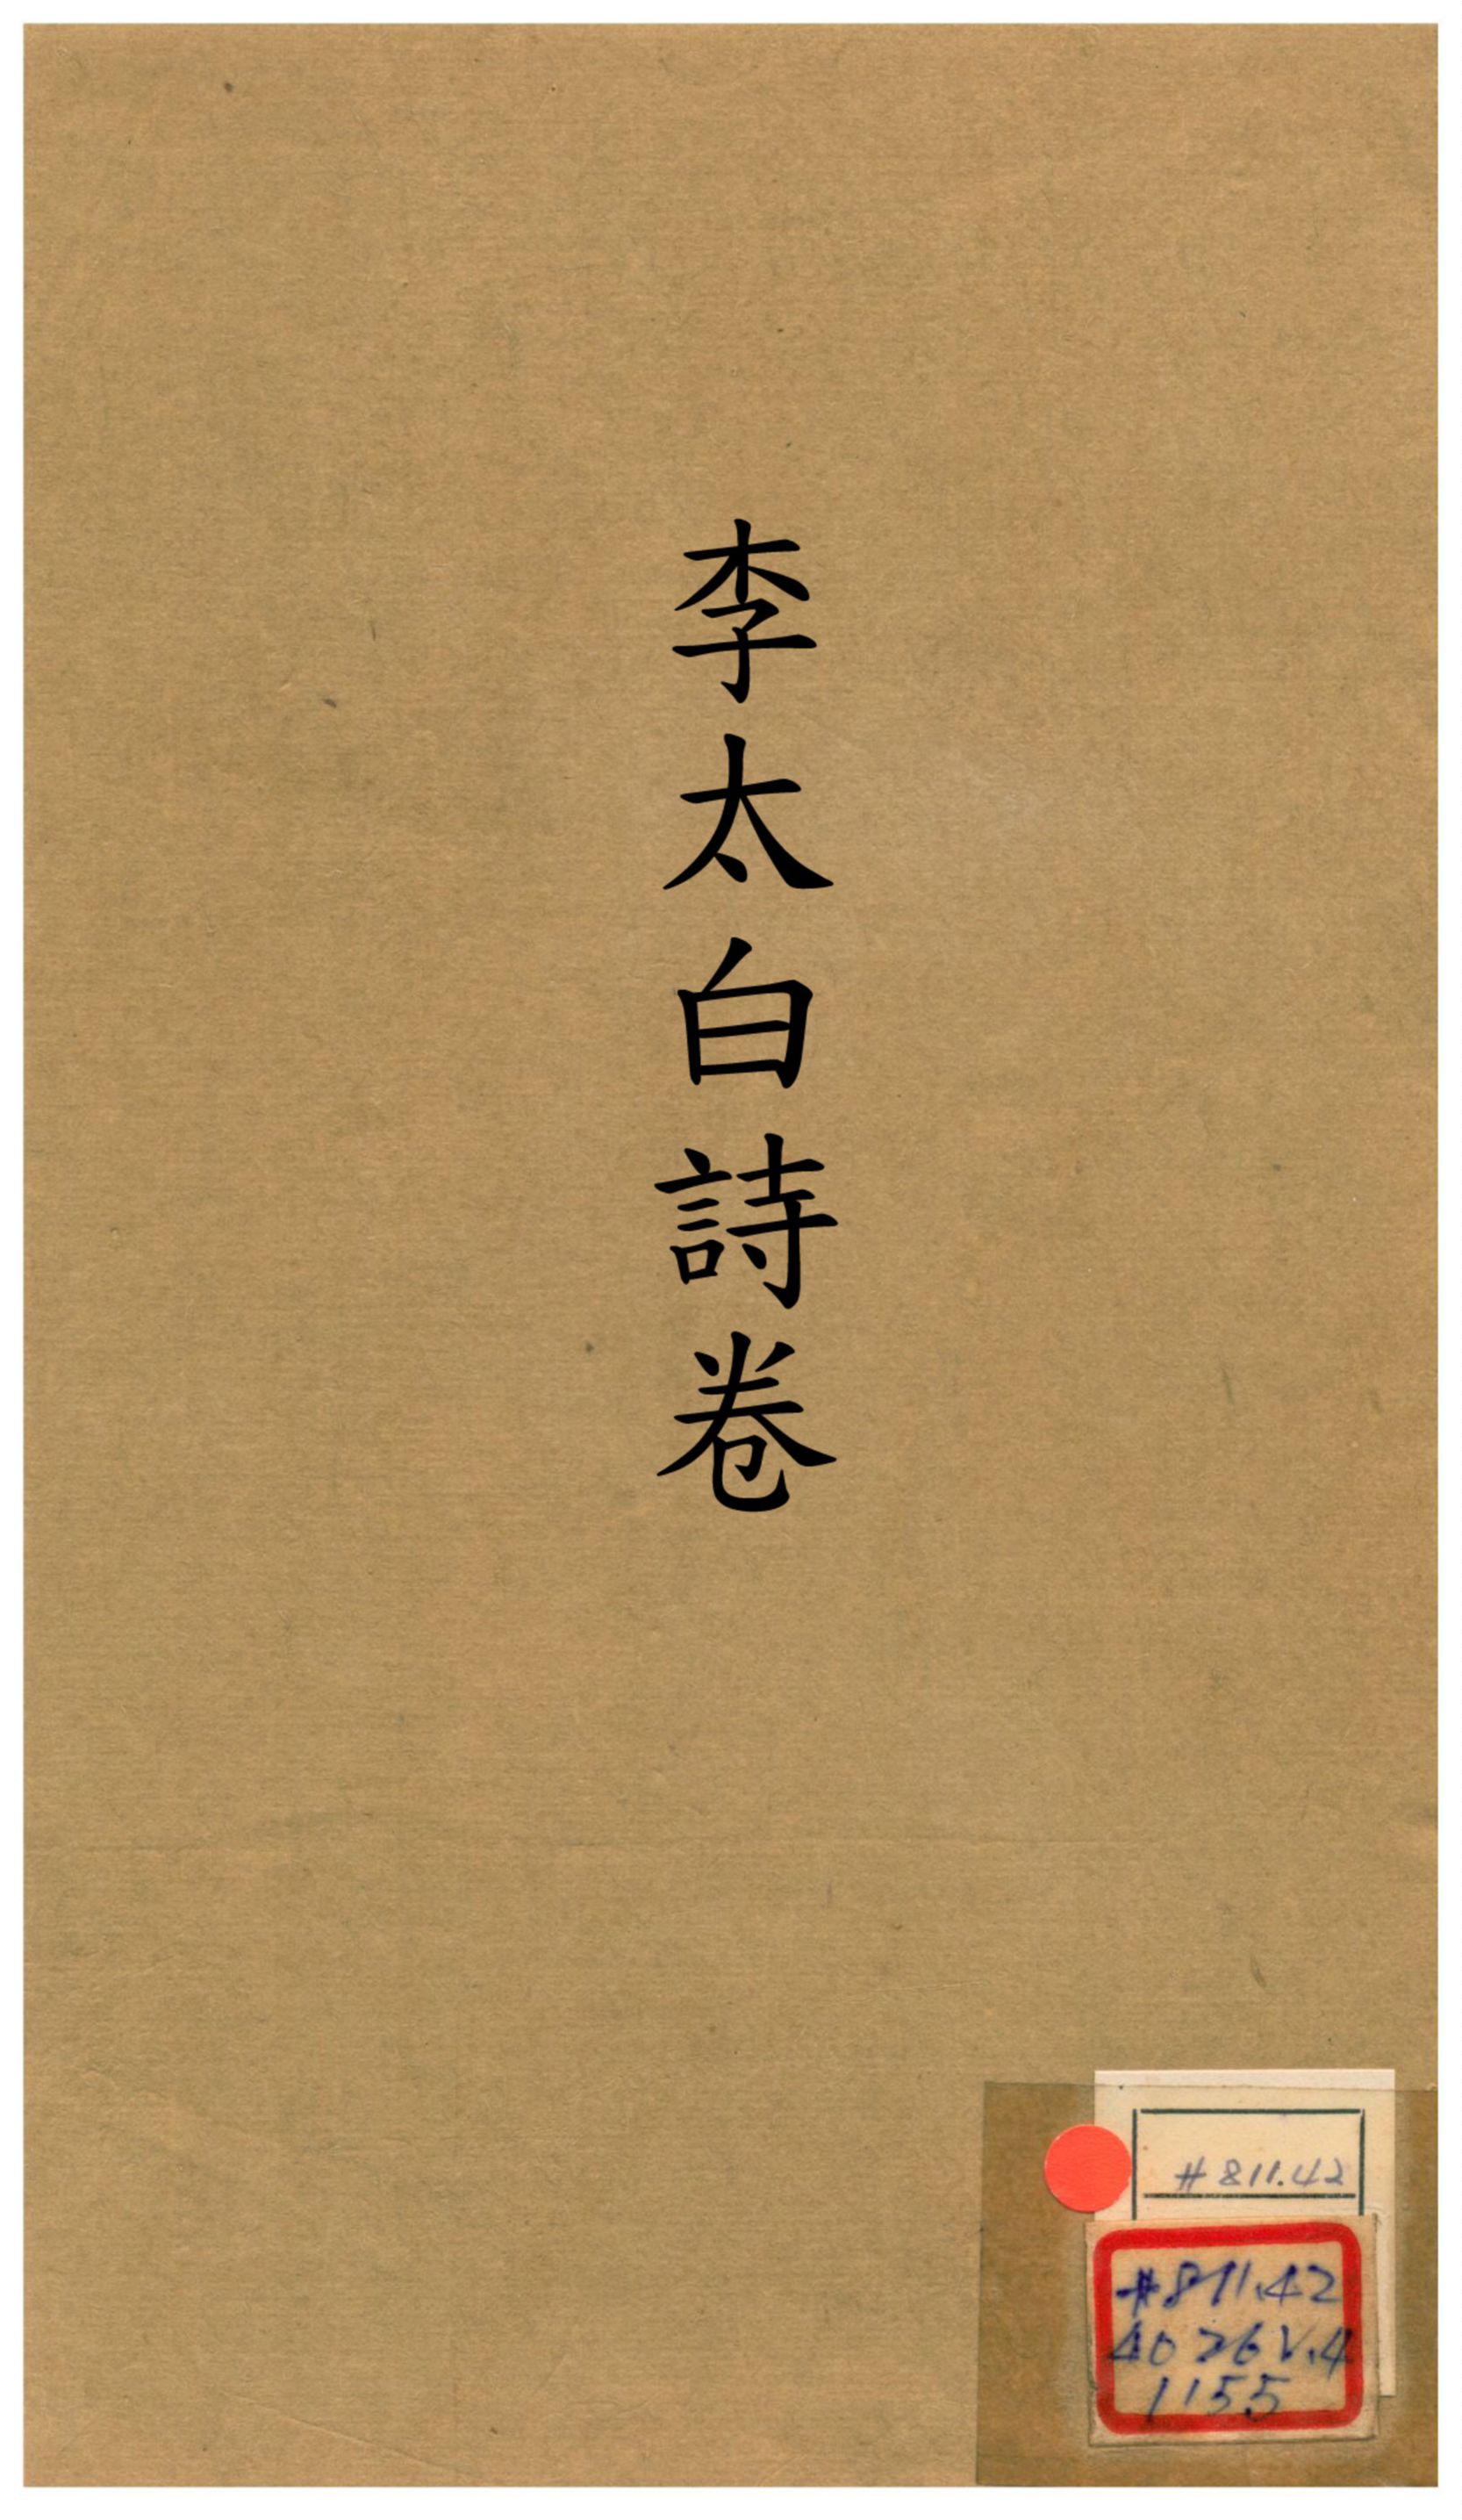 李太白詩卷
#811.42
#811.42
4026 V.4
1155